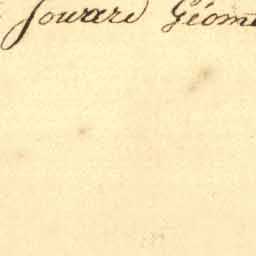 Jouvard Géom